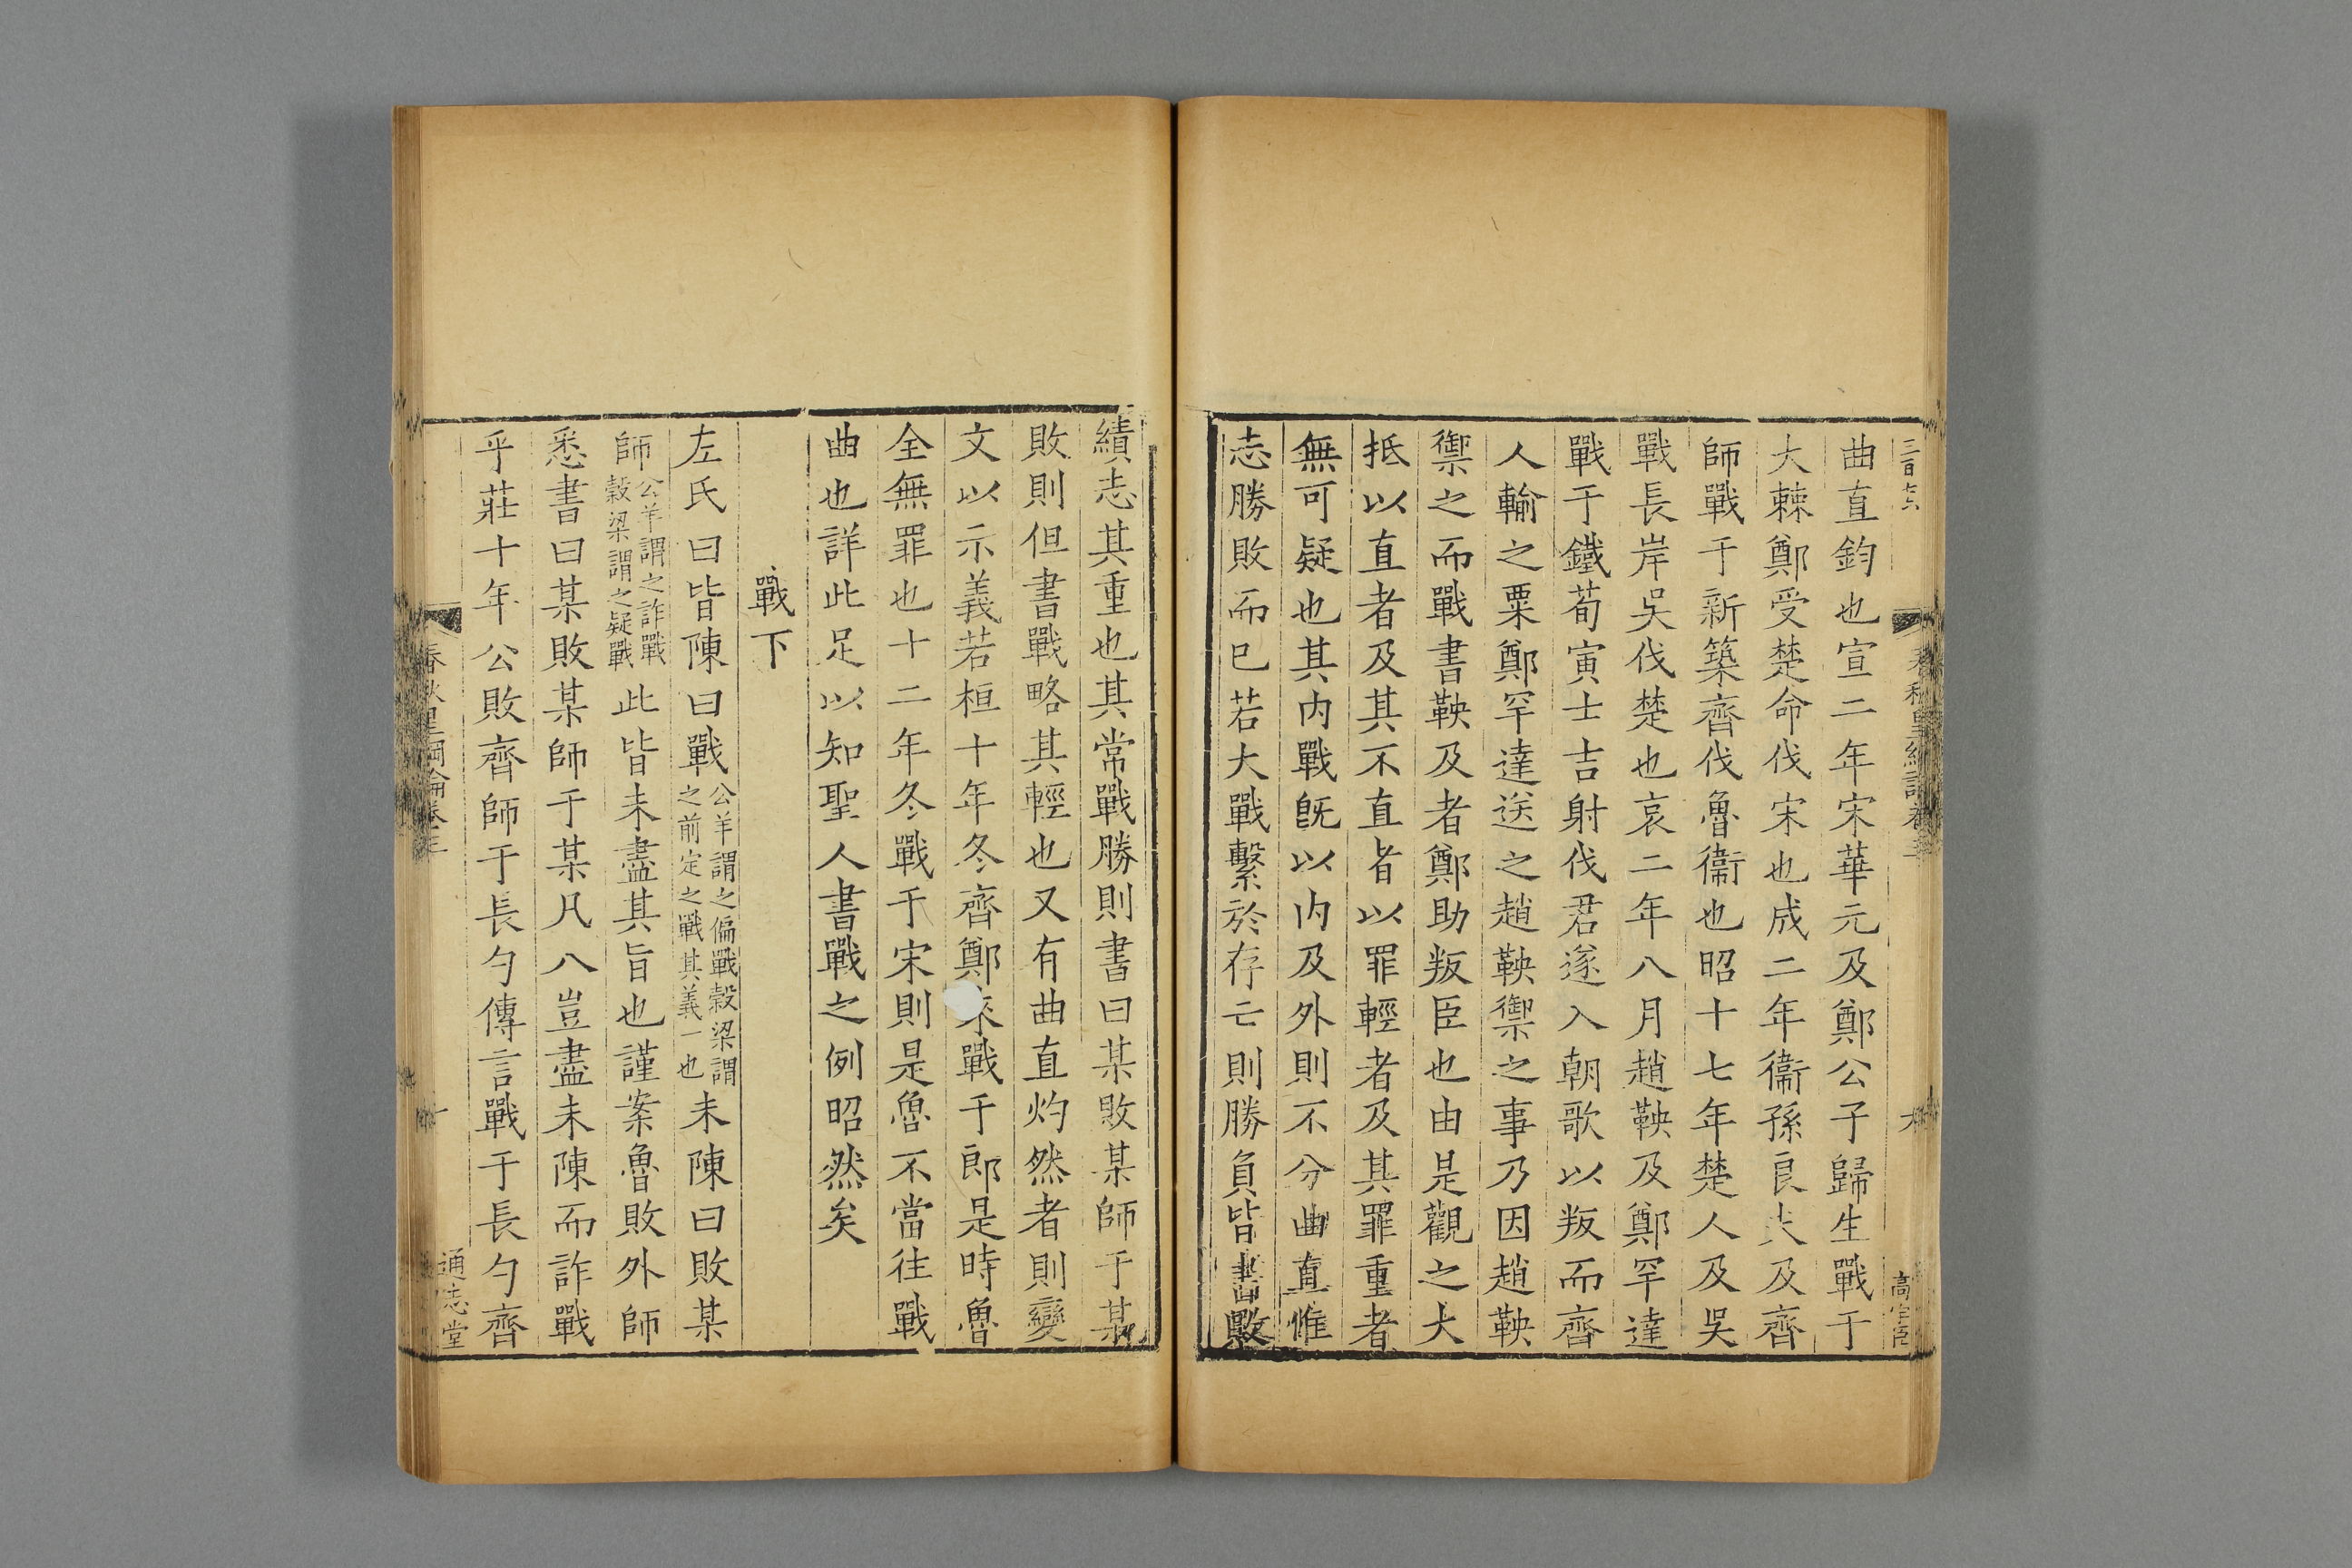 三百七六
春秋皇綱論卷三
高宇臣
曲直鈞也宣二年宋華元及鄭公子歸生戰于
大棘鄭受楚命伐宋也成二年衞孫良夫及齊
師戰于新築齊伐魯衞也昭十七年楚人及吳
戰長岸吳伐楚也哀二年八月趙鞅及鄭罕達
戰于鐵荀寅士吉射伐君遂入朝歌以叛而齊
人輸之粟鄭罕達送之趙鞅禦之事乃因趙鞅
禦之而戰書鞅及者鄭助叛臣也由是觀之大
抵以直者及其不直者以罪輕者及其罪重者
無可疑也其内戰旣以内及外則不分曲直惟
志勝敗而已若大戰繫於存亡則勝負皆書敗
績志其重也其常戰勝則書曰某敗某師于某
敗則但書戰略其輕也又有曲直灼然者則變
文以示義若桓十年冬齊鄭來戰于郎是時魯
全無罪也十二年冬戰于宋則是魯不當往戰
曲也詳此足以知聖人書戰之例昭然矣
戰下
左氏曰皆陳曰戰公羊謂之偏戰榖梁謂之前定之戰其義一也未陳曰敗某
師公羊謂之詐戰榖梁謂之疑戰此皆未盡其旨也謹案魯敗外師
悉書曰某敗某師于某凡八豈盡未陳而詐戰
乎莊十年公敗齊師于長勺傳言戰于長勺齊
春秋皇綱論卷三
十
通志堂